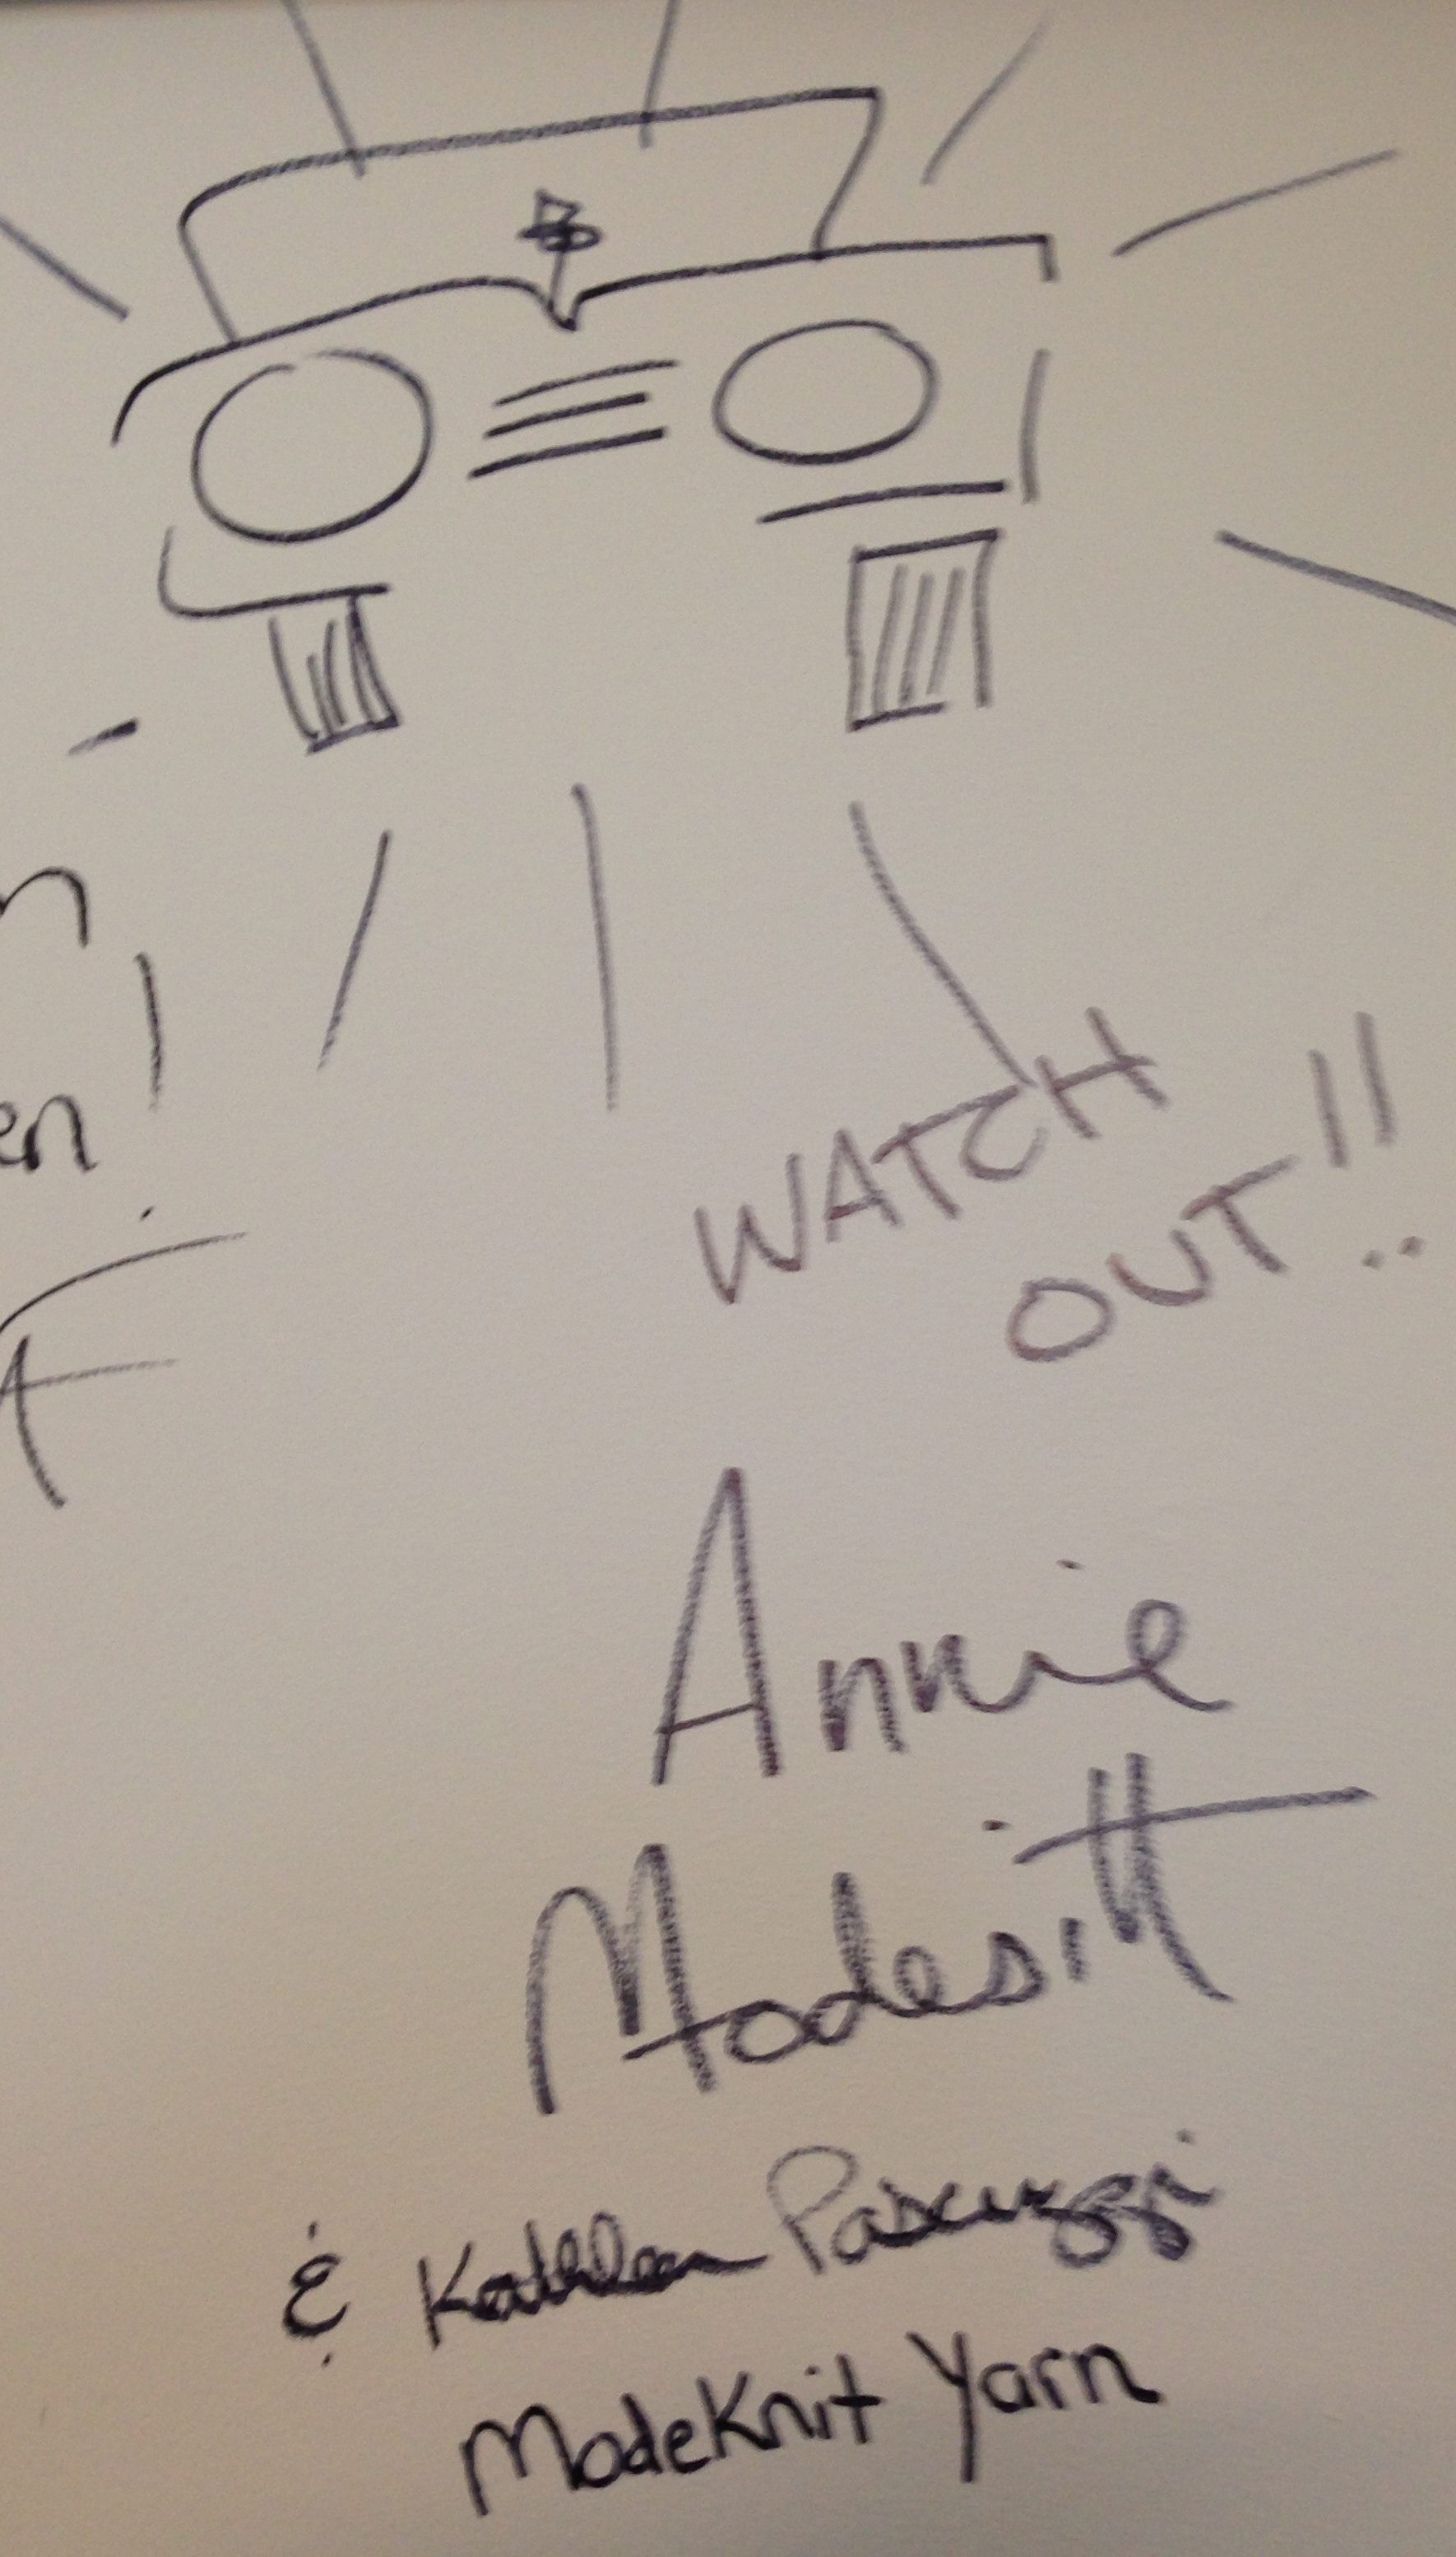 WATCH
OUT!!
Annie
Modesitt
& Kathleen Pascuzzi
ModeKnit Yarn